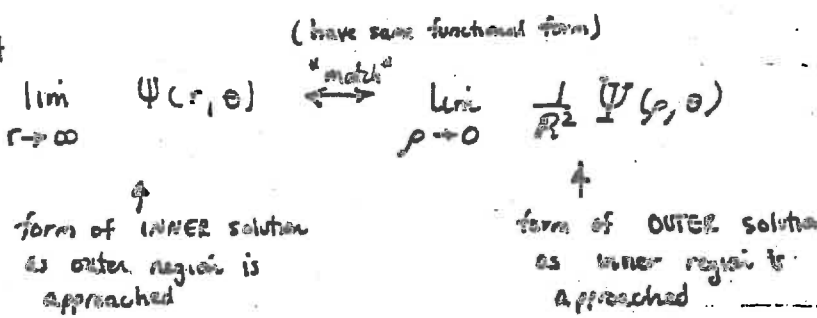 (have same functional form)
"match"
lim Ψ(r, θ) ↔ lim 1/R² Ψ(ρ, θ)
r→∞ ρ→0
↑ ↑
form of INNER solution
as outer region is
approached
form of OUTER solution
as inner region is
approached